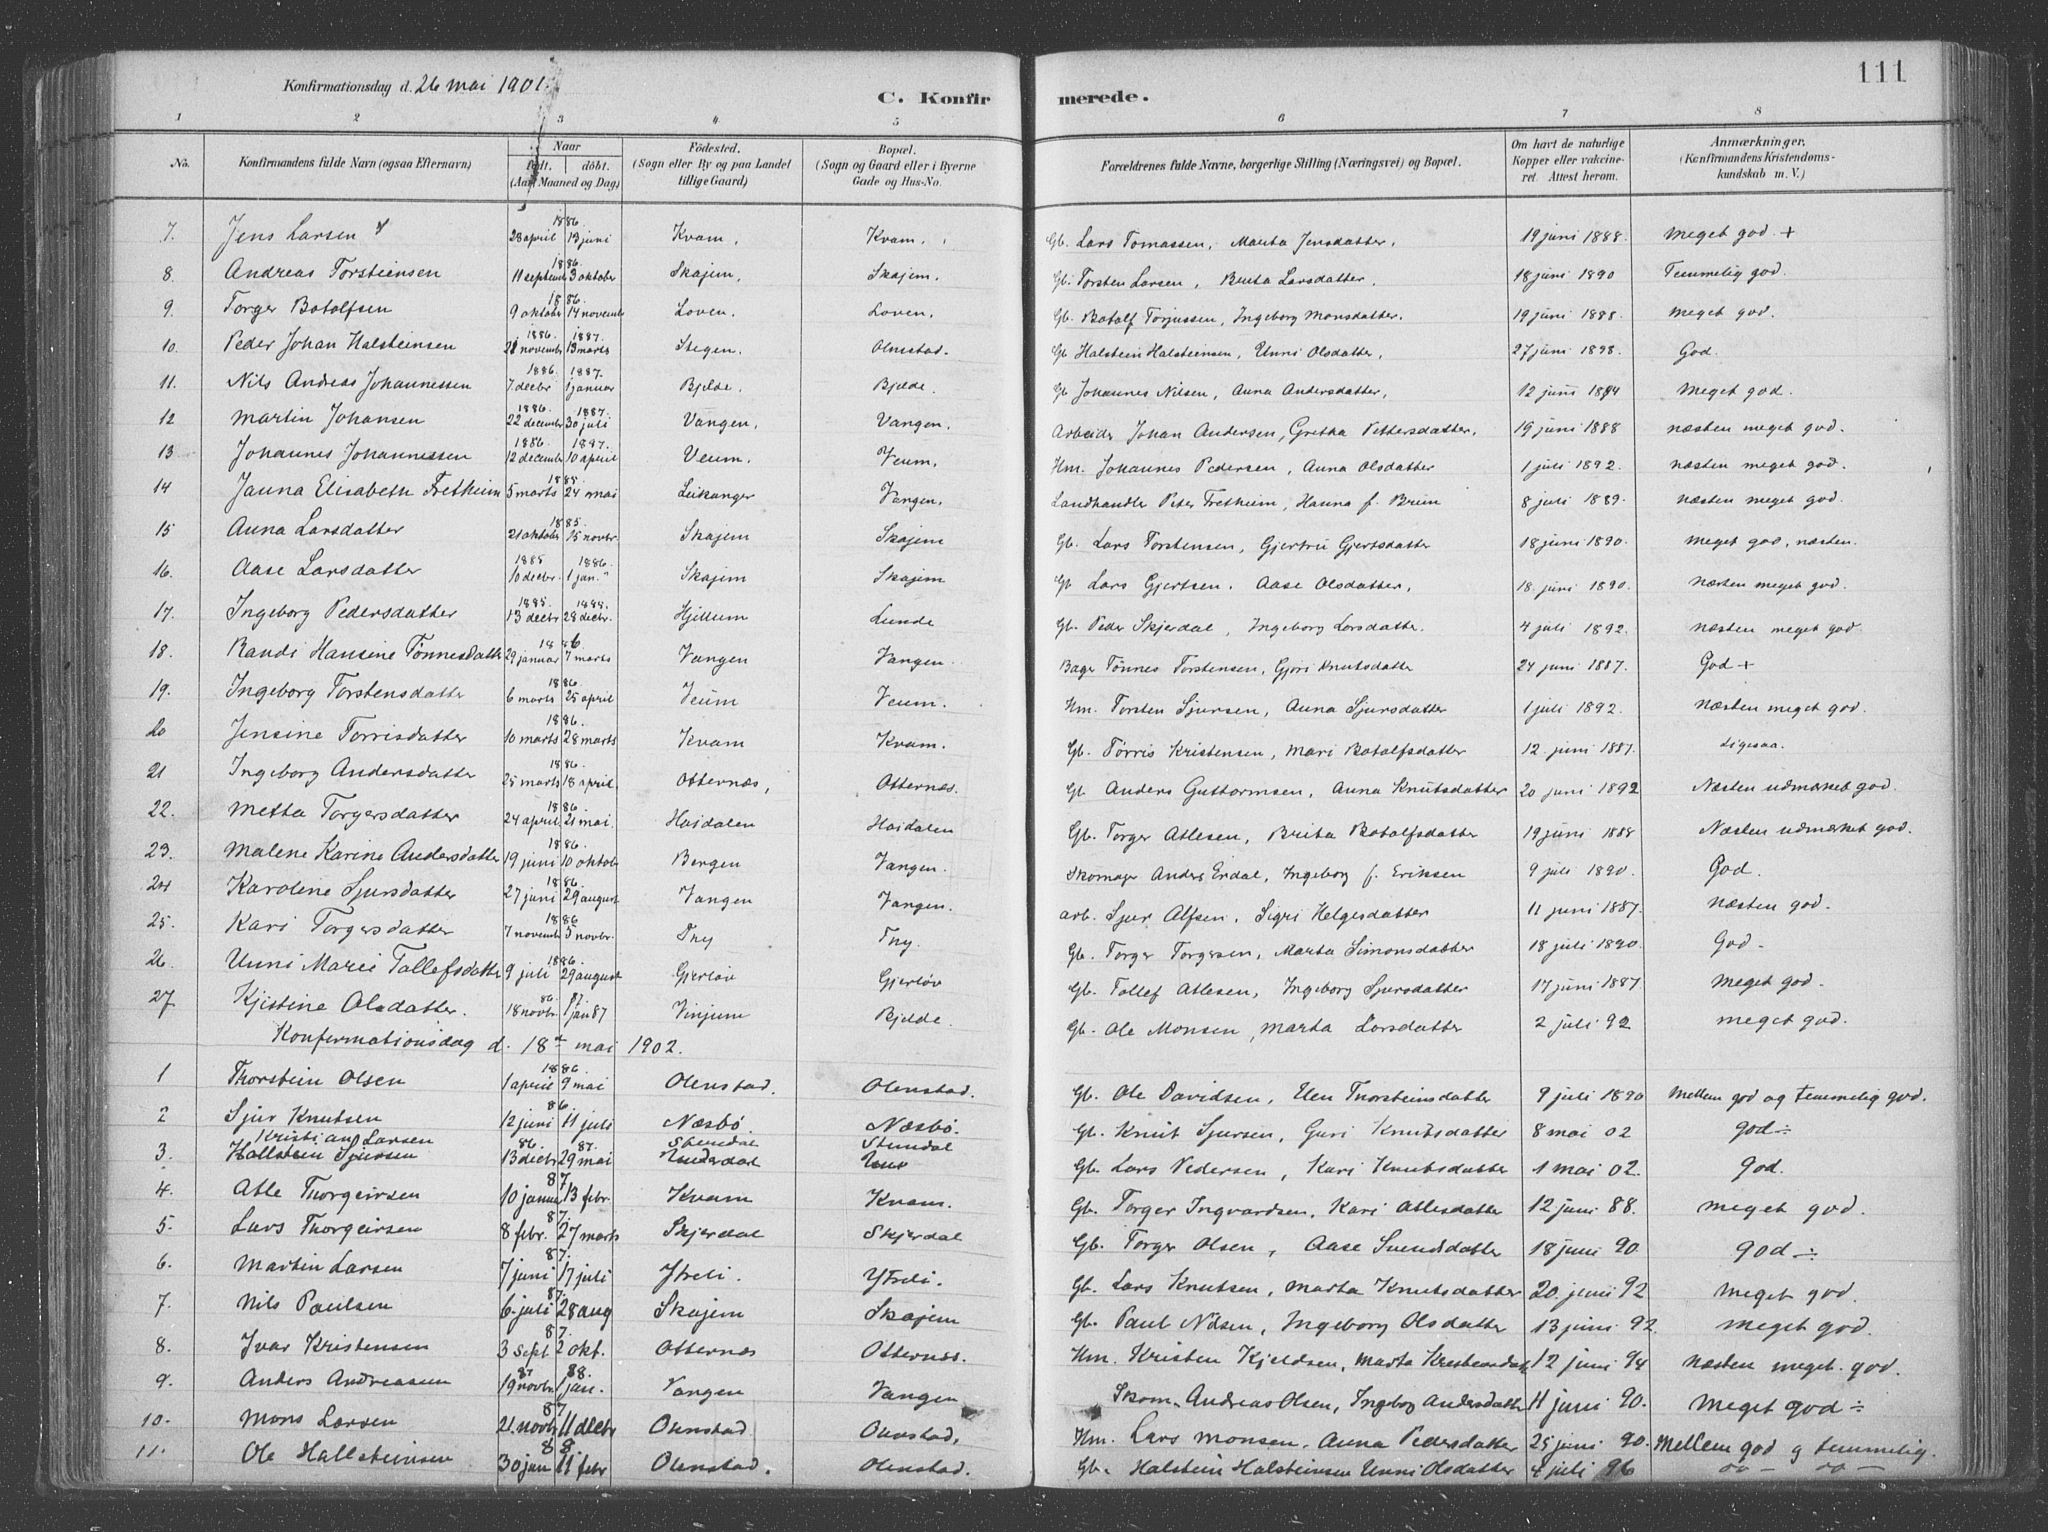 111
Konfirmationsdag d. 26 mai 1901.
C. Konfirmerede.
1 2 3 4 5 6 7 8
No. Konfirmandens fulde Navn (ogsaa Efternavn) Naar født. døbt. (Aar, Maaned og Dag) Fødested. (Sogn eller By og paa Landet tillige Gaard) Bopæl. (Sogn og Gaard eller i Byerne Gade og Hus-No. Forældrenes fulde Navne, borgerlige Stilling (Næringsvei) og Bopæl. Om havt de naturlige Kopper eller vakcineret. Attest herom. Anmærkninger, (Konfirmandens Kristendomskundskab m. V.)
7. Jens Larsen 1886 23 april 13 juni Kvam. Kvam. Gb. Lars Tomassen, Marta Jensdatter, 19 juni 1888. Meget god +
8. Andreas Torsteinsen 1886 11 septembr 3 oktober Skajem. Skajem. Gb. Torsten Larsen, Brita Larsdatter, 18 juni 1890 Temmelig god.
9. Torger Botolfsen 1886. 9 oktober 14 novembr Loven. Loven. Gb. Botolf Torjussen, Ingeborg Monsdatter. 19 juni 1888. Meget god.
10. Peder Johan Halsteinsen 1886. 1887. 21 novembr 13 marts Stegen. Olmstad. Gb Halstein Halsteinsen, Unni Olsdatter, 27 juni 1898. God.
11. Nils Andreas Johannessen 1886 1887. 7 decbr 1 januar Bjelde. Bjelde. Gb Johannes Nilsen, Anna Andersdatter, 12 juni 1894 Meget god.
12 Martin Johansen 1886. 1887. 22 decembr 30 juli Vangen, Vangen, Arbeider Johan Andersen, Gretha Pettersdatter, 19 juni 1888 næsten meget god.
13 Johannes Johannessen 1886 1887. 12 decembr 10 april Veum. Veum, Hm. Johannes Pedersen, Anna Olsdatter 1 juli 1892. næsten meget god.
14 Janna Elisabeth Fretheim 1885 5 marts 24 mai Leikanger Vangen, Landhandler Peter Fretheim, Hanna f. Bruun 8 juli 1889. næsten meget god
15 Anna Larsdatter 1885. 21 oktober 15 novbr. Skajem Skajem Gb. Lars Torstensen, Gjertru Gjertsdatter 18 juni 1890. Meget god, næsten.
16. Aase Larsdatter 1885 1886. 10 decbr. 1 jan. Skajem Skajem Gb Lars Gjertsen. Aase Olsdatter, 18. juni 1890. Næsten meget god.
17. Ingeborg Pedersdatter 1885. 1885. 13 decbr 28 decbr. Hjellum Lunde Gb. Peder Skjerdal, Ingeborg Larsdatter. 4 juli 1892. næsten meget god.
18. Randi Hansine Tønnesdatter 1886 29 januar 7 marts Vangen Vangen. Bager Tønnes Torstensen, Gjøri Knutsdatter 24 juni 1887. God +
19. Ingeborg Torstensdatter 1886. 6 marts 25 april Veum Veum. Hm. Torsten Sjursen, Anna Sjursdatter 1 juli 1892. Næsten meget god.
20 Jensine Torrisdatter 1886. 10 marts 28 marts Kvam Kvam. Gb. Tørris Kristensen, Mari Botolfsdatter 12. juni 1887. Ligesaa.
21 Ingeborg Andersdatter 1886. 25 marts 18 april. Otternæs, Otternæs. Gb. Anders Guttormsen, Anna Knutsdatter 20 juni 1892 Næsten udmærket god.
22. Metta Torgersdatter 1886 24 april 21 mai. Haidalen Haidalen Gb. Torger Atlesen, Brita Botolfsdatter 19 juni 1888 Næsten udmærket god.
23. Malene Karine Andersdatter 1886. 19 juni 10 oktobr Bergen Vangen. Skomager Anders Erdal, Ingeborg f. Eriksen 9 juli 1890. God.
24 Karoline Sjursdatter 1886. 27 juni 29 august Vangen Vangen. arb. Sjur Alfsen. Sigri Helgesdatter 11 juni 1887. Næsten god.
25. Kari Torgersdatter 1886 7 novembr 5 novbr. Fny Fny. Gb. Torger Torgersen, Marta Simonsdatter 18 juli 1890. God.
26. Unni Marie Tollefsdatter 1886. 9 juli 29 august Gjerløv Gjerløv Gb. Tollef Atlesen, Ingeborg Sjursdatter 17 juni 1887. Meget god.
27 Kjistine Olsdatter. 86. 87. 18 novbr. 1 jan 87 Vinjum Bjelde. Gb. Ole Monsen, Marta Larsdatter 2 juli 92 meget god.
Konfermationsdag d. 18de mai 1902.
1 Thorstein Olsen 1886. 1 april 9 mai Olmstad. Olmstad. Gb. Ole Davidsen, Unn Thorsteinsdatter 9 juli 1890 Mellem god og temmelig god.
2 Sjur Knutsen 86. 12 juni 11 juli Næsbø. Næsbø. Gb. Knut Sjursen, Guri Knutsdatter 8 mai 02 god ÷
Kristian Larsen 86. 87. Stundal Stundal
3. Hallstein Sjursen 13 decbr 29 mai Underdal Gb. Lars Pedersen, Kari Knutsdatter 1 mai 02. god.
4. Atle Thorgeirsen 87 10 januar 13 febr. Kvam Kvam. Gb. Torger Ingvardsen, Kari Atlesdatter 12 juni 88. meget god.
5. Lars Thorgeirsen 87. 8 febr. 27 marts Skjerdal Skjerdal Gb. Torger Olsen, Aase Svendsdatter 18 juni 90. god ÷
6. Martin Larsen 87. 7 juni 17 juli Ytreli. Ytreli. Gb. Lars Knutsen, Marta Knutsdatter 20. juni 92 Meget god.
7. Nils Paulsen 87. 6. juli 28 aug Skajem Skajem Gb. Paul Nilsen, Ingeborg Olsdatter 13 juni 92. meget god.
8. Ivar Kristensen 87. 3 sept. 2 okt. Otternæs Otternæs. Hm. Kristen Kjeldsen, Marta Kristensdatter 12 juni 94 næsten meget god.
9. Anders Andreassen 87 88. 19 novbr. 1 jan. Vangen Vangen Skom. Andreas Olsen, Ingeborg Andersdatter 11 juni 90. Meget god ÷
10. Mons Larsen 87 21. novbr 11 decbr Olmstad Olmstad, Hm. Lars Monsen, Anna Pedersdatter 25 juni 90. Mellem god og temmelig.
11. Ole Hallsteinsen 88 30 jan 11 febr Olmstad. Olmstad. Gb. Halstein Halsteinsen Unni Olsdatter 4 juli 96 do — do —